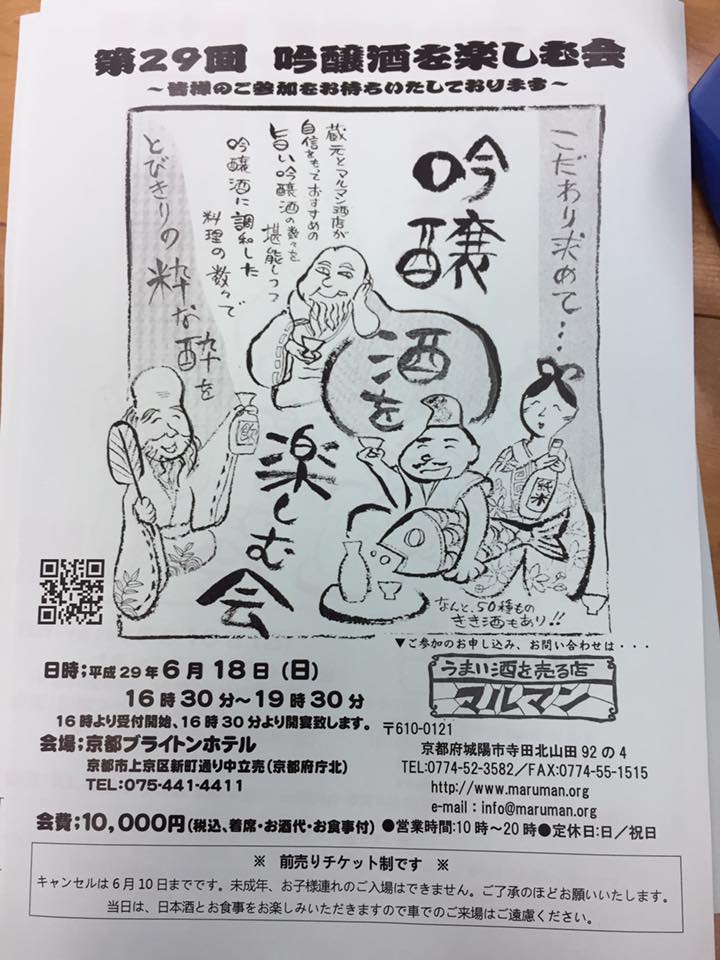 第29回 吟醸酒を楽しむ会
～皆様のご参加をお待ちいたしております～
こだわり求めて…
吟醸
酒を
楽しむ会
蔵元とマルマン酒店が
自信をもっておすすめの
旨い吟醸酒の数々を
堪能しつつ
吟醸酒に調和した
料理の数々で
とびきりの粋な酔を
純米
なんと、50種もの
きき酒もあり!!
▼ご参加のお申し込み、お問い合わせは・・・
うまい酒を売る店
マルマン
日時；平成29年6月18日（日）
16時30分～19時30分
16時より受付開始、16時30分より開宴致します。
会場；京都ブライトンホテル
京都市上京区新町通り中立売（京都府庁北）
TEL:075-441-4411
〒610-0121
京都府城陽市寺田北山田92の4
TEL:0774-52-3582／FAX:0774-55-1515
http://www.maruman.org
e-mail：info@maruman.org
会費；10,000円（税込、着席・お酒代・お食事付）
●営業時間：10時～20時●定休日：日／祝日
※ 前売りチケット制です ※
キャンセルは6月10日までです。未成年、お子様連れのご入場はできません。ご了承のほどお願いいたします。
当日は、日本酒とお食事をお楽しみいただきますので車でのご来場はご遠慮ください。